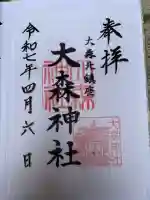 奉拝
大森北鎮座
大森神社
令和七年四月六日